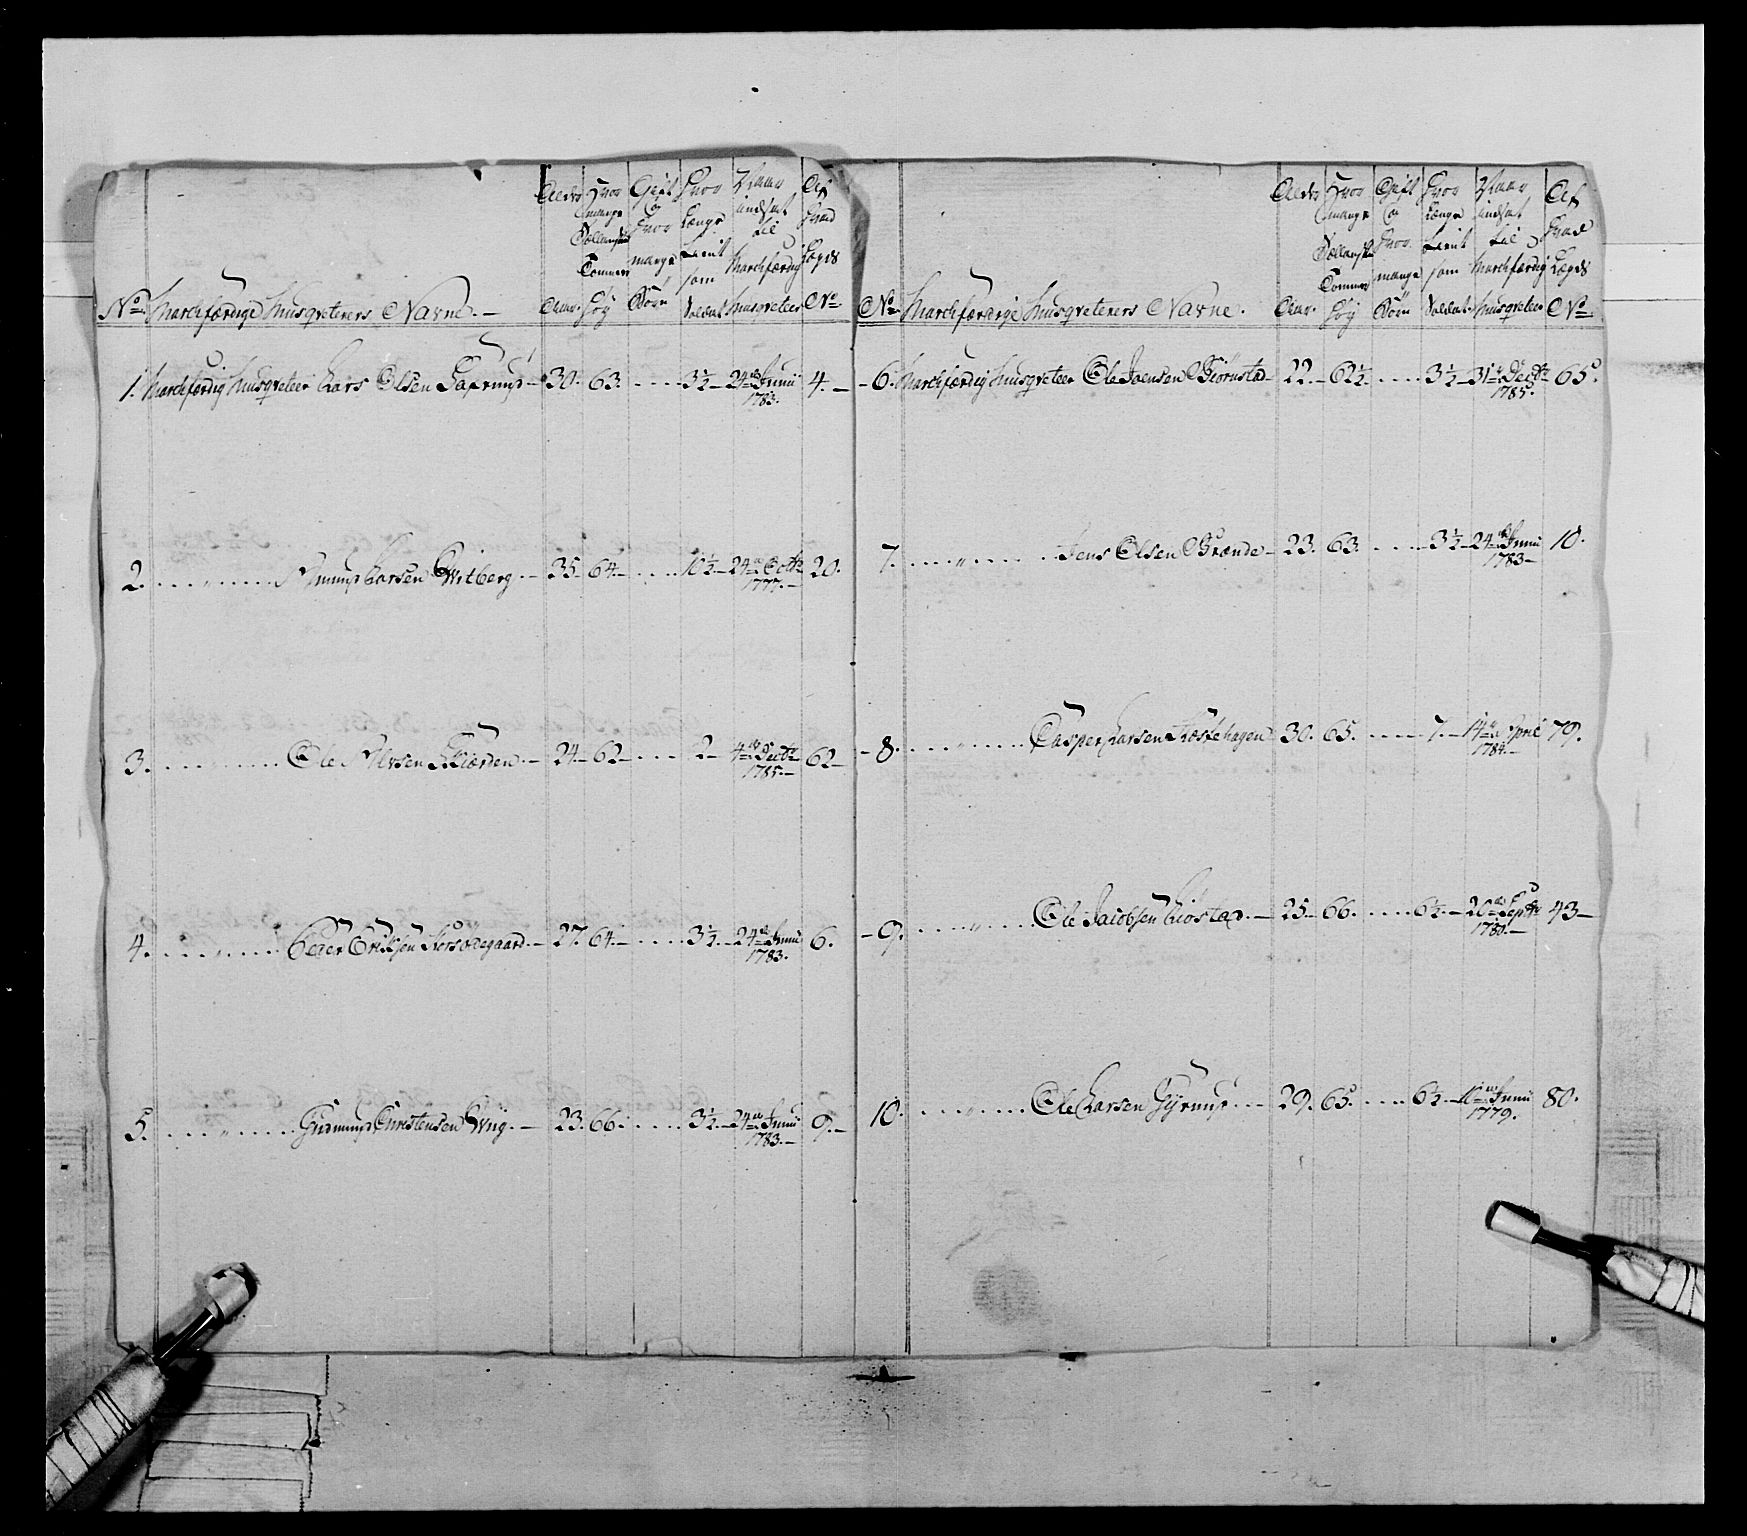 No. Marchfærdige Musqveterers Navne. Alder Aar. Hvor mange Sællandske Tommer høy Gift og hvor mange Børn Hvor Længe tient som Soldat Naar indsat til Marchfærdig Musqveteer Af hvad Lægds No.
1. Marchfærdig Musqveteer Lars Olsen 30. 63. 3½ 24de Junii 1783. 4.
2. Amund Larsen 35 64. 10½ 24de Octbr 1777. 20.
3. Ole Skiærden 24 62 2 4de Decbr 1785. 62
4. Peder Eriksen 27. 64. 3½ 24de Junii 1783. 6.
5. Gudmund Christensen 23. 66. 3½ 24de Junii 1783. 9.
No. Marchfærdige Musqveterers Navne. Alder Aar. Hvor mange Sællandske Tommer høy Gift og hvor mange Børn Hvor Længe tient som Soldat Naar indsat til Marchfærdig Musqveteer Af hvad Lægds No.
6. Marchfærdig Musqveteer Ole Joensen Biørnstad 22. 62½ 3½ 31te Decbr 1785. 65.
7. Jens Olsen Brænde 23. 63. 3½ 24de Junii 1783 10.
8. Casper Larsen 30. 65. 7. 14de April 1784. 79.
9. Ole Jacobsen 25 66. 6½ 20de Septbr 1780. 43
10. Ole Larsen 29. 65. 6½ Junii 1779. 80.